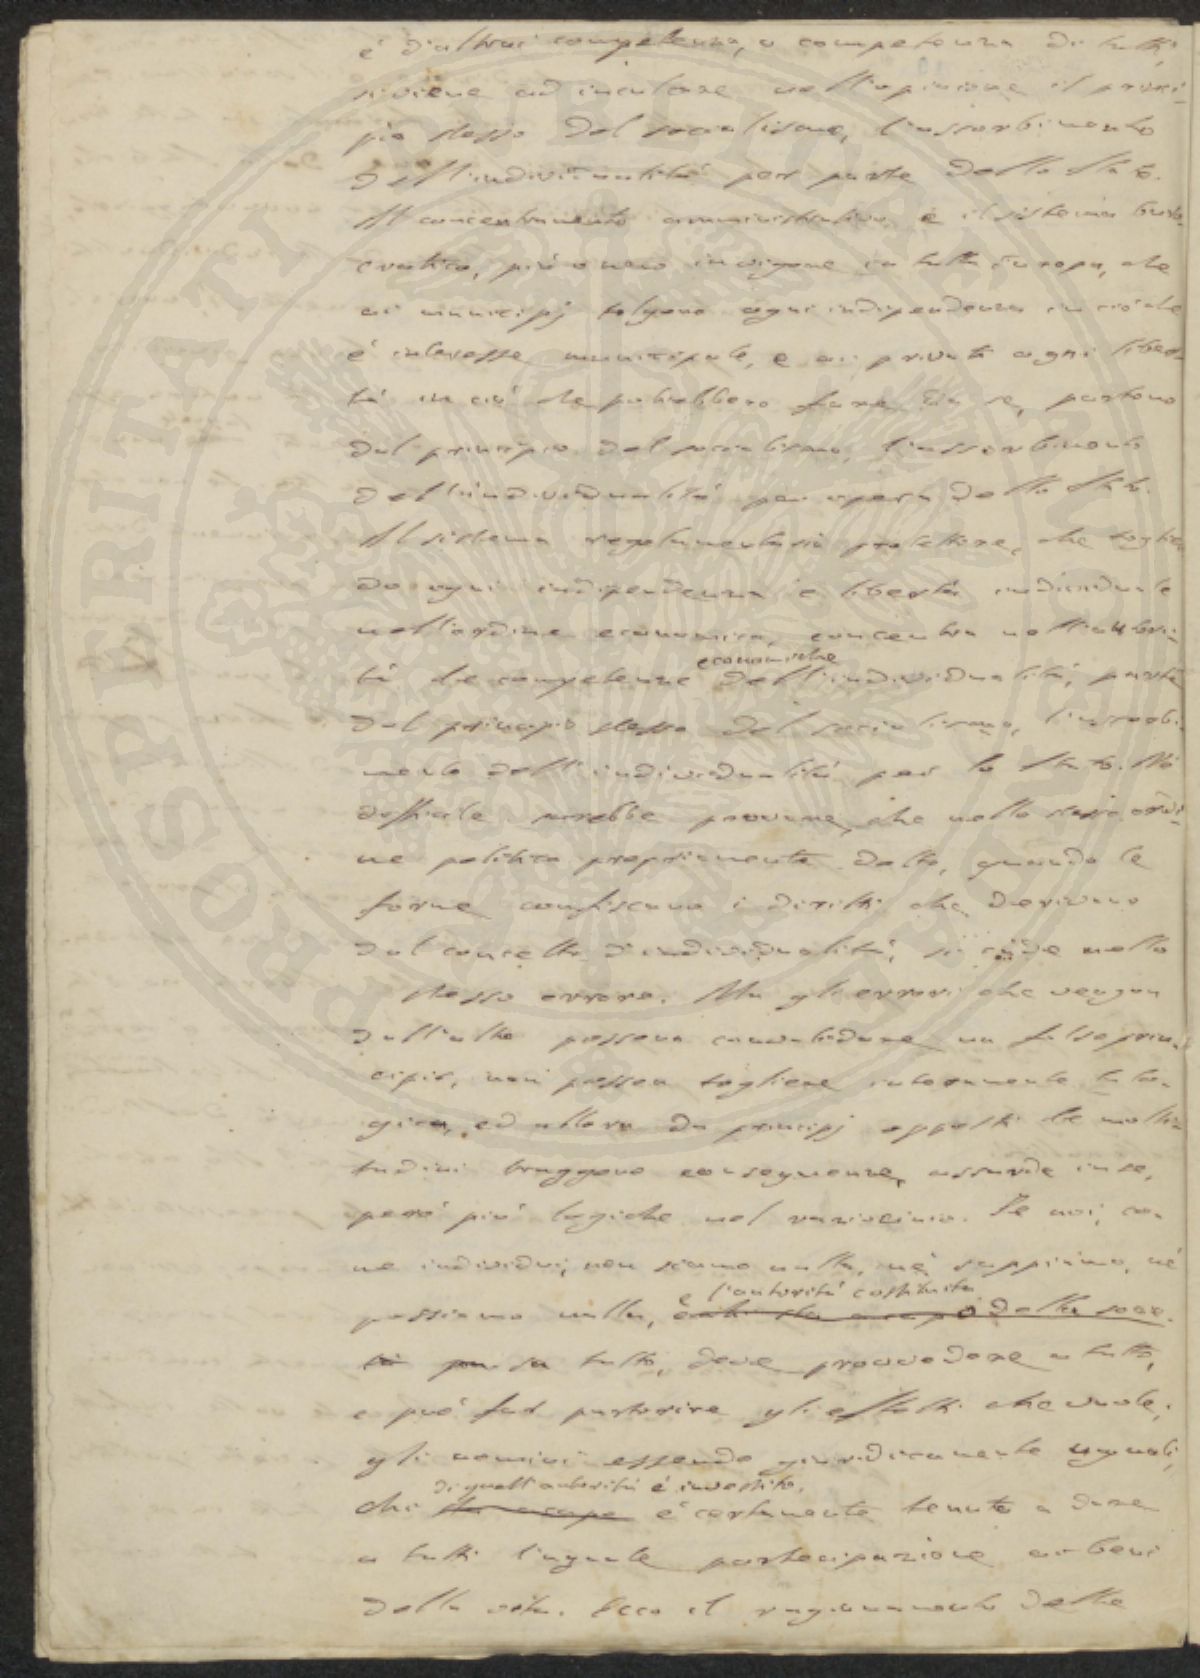 è d'altrui competenza, o competenza di tutti,
si viene ad inculcare nell'opinione il princi-
pio stesso del socialismo, l'assorbimento
dell'individualità per parte dello Stato.
Il concentramento amministrativo e il sistema buro-
cratico, più o meno in vigore in tutta Europa, che
ai municipj tolgono ogni indipendenza in ciò che
è interesse municipale, e ai privati ogni liber-
tà in ciò che potrebbero fare da se, partono
dal principio del socialismo, l'assorbimento
dell'individualità per opera dello Stato.
Il sistema regolamentario protettore, che toglien-
do ogni indipendenza e libertà individuale
nell'ordine economico, concentra nell'autori-
tà le competenze economiche dell'individualità, parte
dal principio stesso del socialismo, l'assorbi-
mento dell'individualità per lo Stato. Nè
difficile sarebbe provare, che nello stesso ordi-
ne politico propriamente detto, quando le
forme confiscano i diritti che derivano
dal concetto d'individualità, si cade nello
stesso errore. Ma gli errori che vengon
dall'alto possono convalidare un falso prin-
cipio, non posson togliere interamente la lo-
gica, ed allora da principj opposti le molti-
tudini traggono conseguenze, assurde in se,
però più logiche nel raziocinio. Se noi, co-
me individui, non siamo nulla, nè sappiamo, nè
possiamo nulla, e l'autorità costituita della soce-
tà sa tutto, deve provvedere a tutto,
e può far partorire gli effetti che vuole;
gli uomini essendo giuridicamente uguali,
chi di quell'autorità è investito, sta a capo è certamente tenuto a dare
a tutti l'uguale partecipazione ai beni
della vita. Ecco il ragionamento delle
PROSPERITATI PUBLICAE AUGENDAE